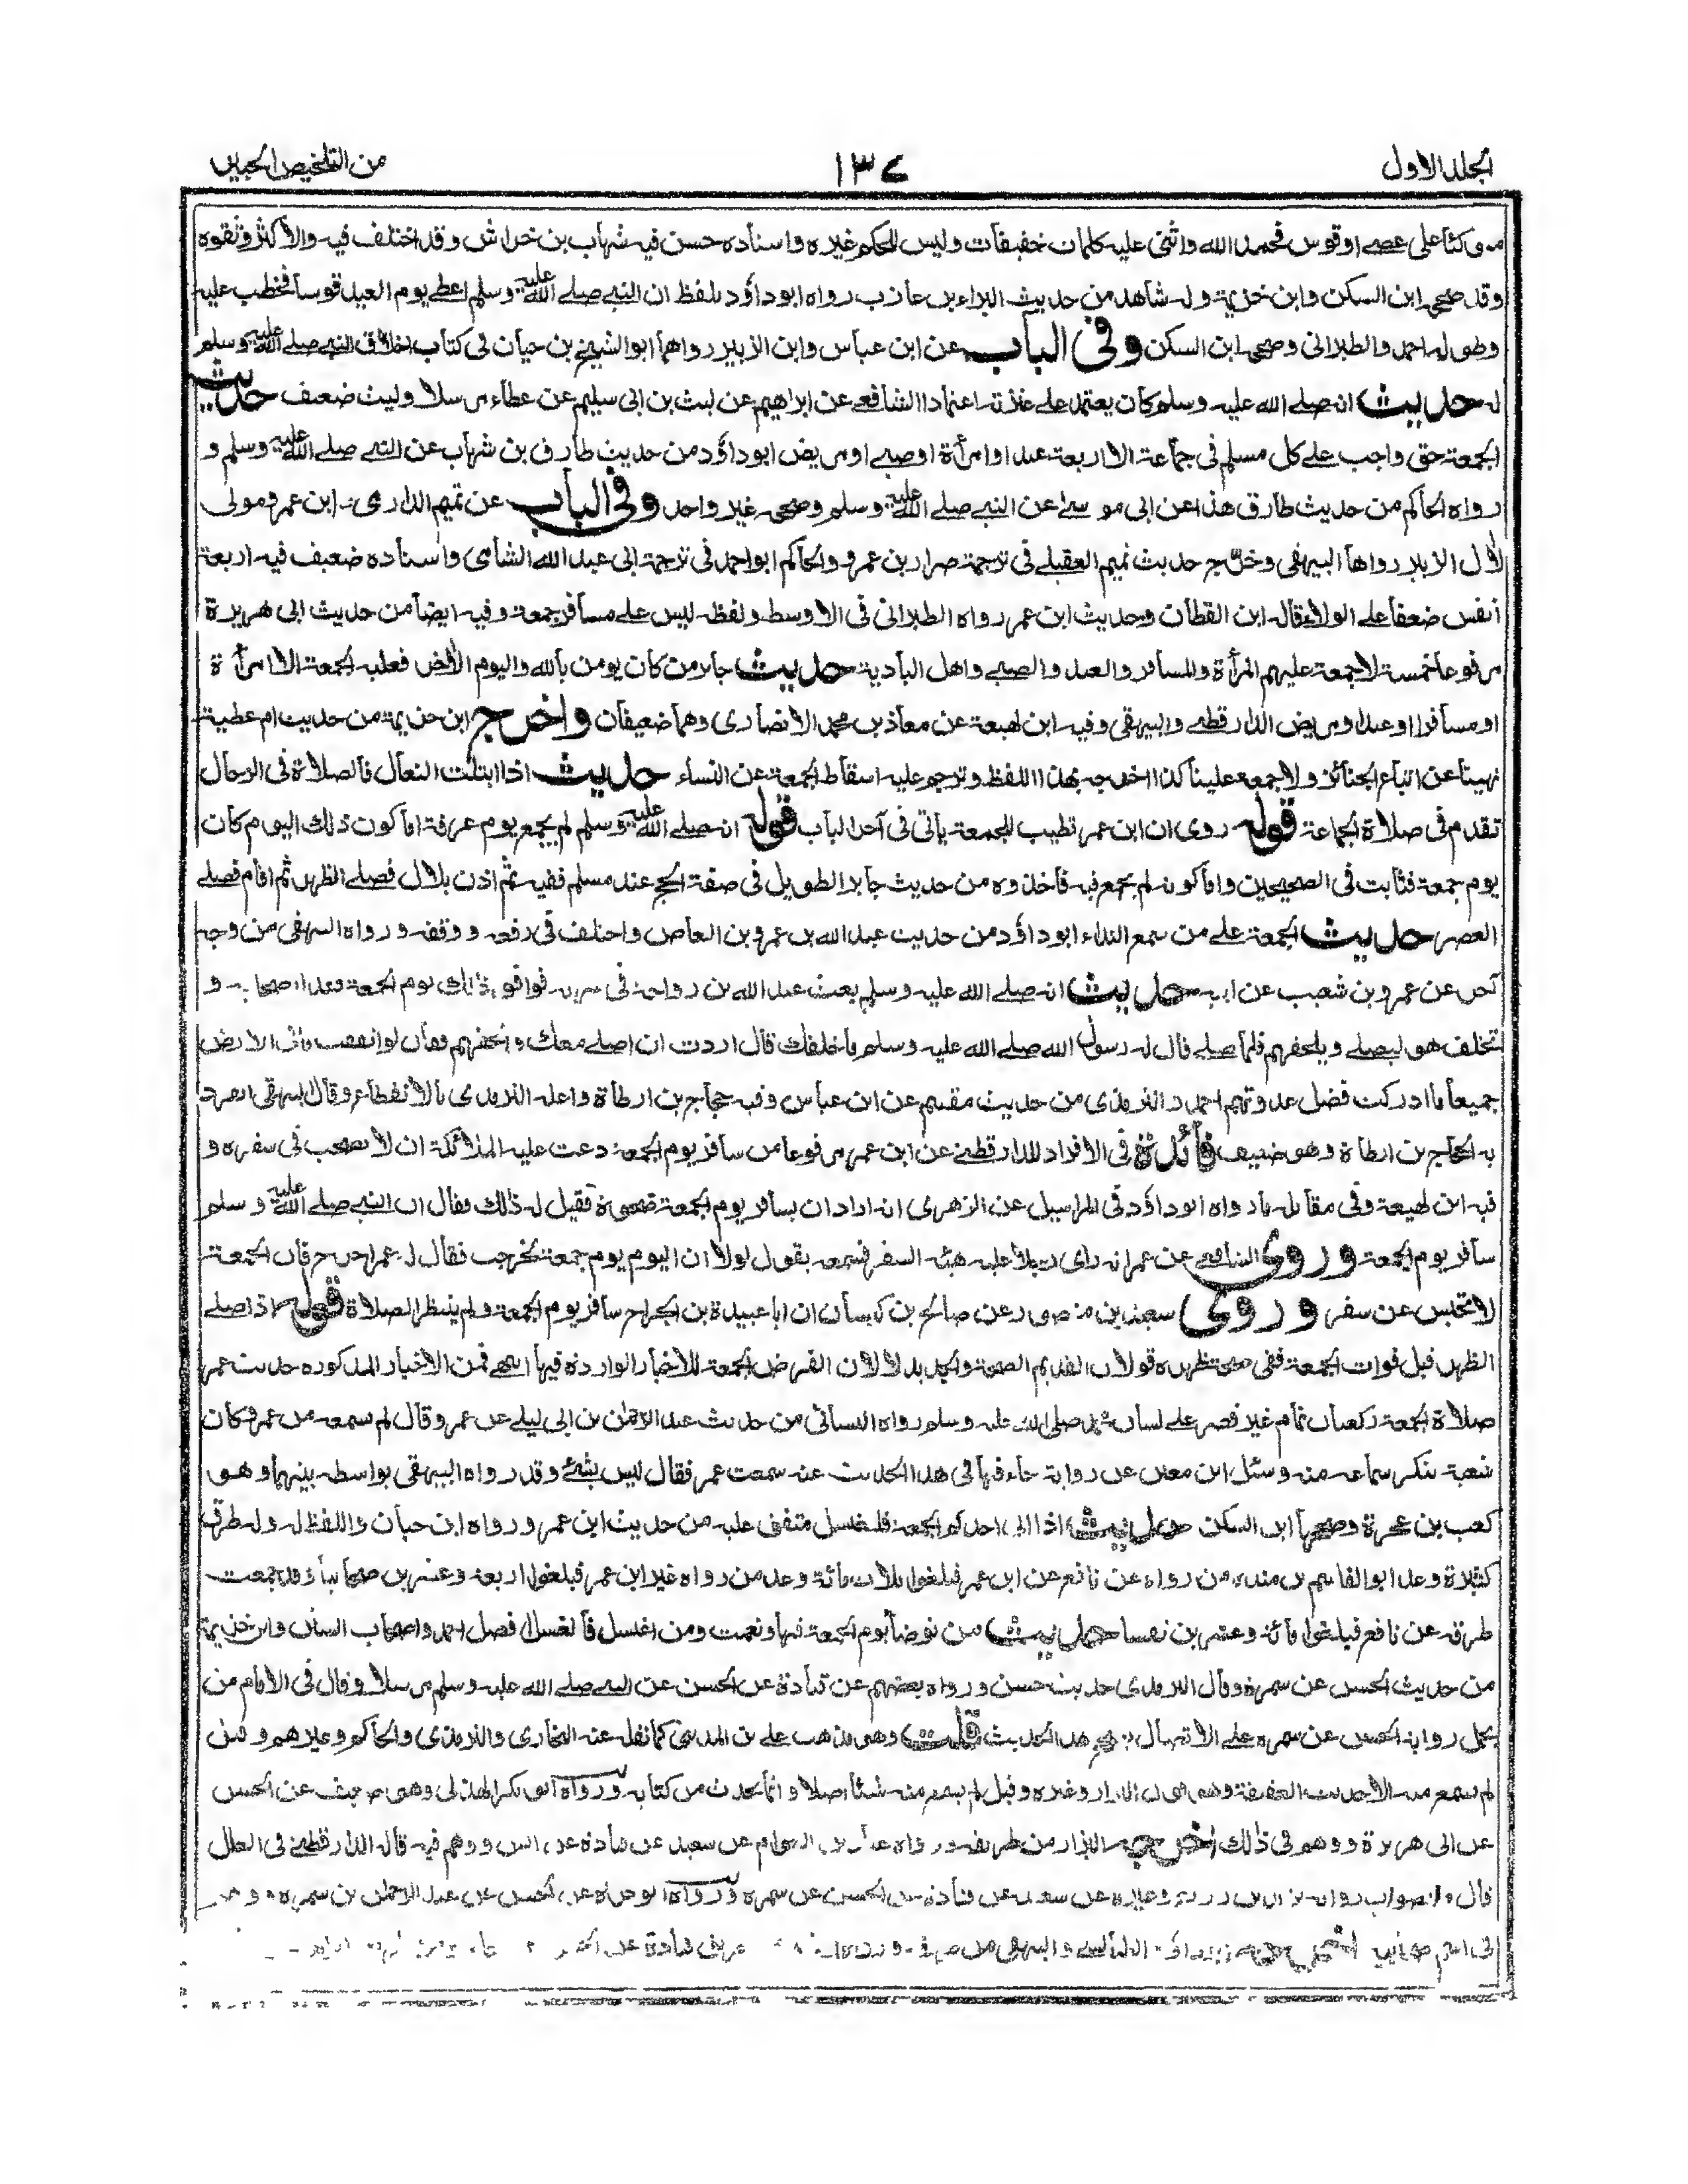 المجلد الاول
١٣٧
من التلخيص الحبير
متوكئا على عصے او قوس فحمد الله واثنى عليه كلمات خفيفات وليس للحكم غيره واسناده حسن فيه شهاب بن خراش وقد اختلف فيه والاكثر وثقوه
وقد صححه ابن السكن وابن خزيمة وله شاهد من حديث البراء بن عازب رواه ابو داؤد بلفظ ان النبے صلے الله عليه وسلم اعطے يوم العيد قوسا فخطب عليه
وطوله احمد والطبرانى وصححه ابن السكن وفى الباب عن ابن عباس وابن الزبير رواهما ابو الشيخ بن حيان فى كتاب اخلاق النبے صلے الله عليه وسلم
له حديث انه صلے الله عليه وسلم كان يعتمد على عنزته اعتمادا الشافعے عن ابراهيم عن ليث بن ابى سليم عن عطاء مرسلا وليث ضعيف حديث
الجمعة حق واجب علے كل مسلم فى جماعة الا اربعة عبد او امرأة او صبے او مريض ابو داؤد من حديث طارق بن شهاب عن النبے صلے الله عليه وسلم و
رواه الحاكم من حديث طارق هذا عن ابى موسےٰ عن النبے صلے الله عليه وسلم وصححه غير واحد وفى الباب عن تميم الدارى وابن عمر ومولى
لأل الزبير رواها البيهقى وخرّج حديث تميم العقيلے فى ترجمة ضرار بن عمرو والحاكم ابو احمد فى ترجمة ابى عبد الله الشامى واسناده ضعيف فيه اربعة
انفس ضعفا علے الولاء قاله ابن القطان وحديث ابن عمر رواه الطبرانى فى الاوسط ولفظه ليس علے مسافر جمعة وفيه ايضا من حديث ابى هريرة
مرفوعا خمسة لا جمعة عليهم المرأة والمسافر والعبد والصبے واهل البادية حديث جابر من كان يومن بالله واليوم الأخر فعليه الجمعة الا امرأة
او مسافرا او عبدا او مريض الدارقطنے والبيهقى وفيه ابن لهيعة عن معاذ بن محمد الانصارى وهما ضعيفان واخرج ابن خزيمة من حديث ام عطية
نهينا عن اتباع الجنائز ولا جمعة علينا كذا اخرجه بهذا اللفظ وترجم عليه اسقاط الجمعة عن النساء حديث اذا ابتلت النعال فالصلاة فى الرحال
تقدم فى صلاة الجماعة قوله روى ان ابن عمر تطيب للجمعة يأتى فى آخر الباب قوله انه صلے الله عليه وسلم لم يجمع يوم عرفة اما كون ذلك اليوم كان
يوم جمعة فثابت فى الصحيحين واما كونه لم يجمع فيه فاخذوه من حديث جابر الطويل فى صفة الحج عند مسلم ففيه ثم اذن بلال فصلے الظهر ثم اقام فصلے
العصر حديث الجمعة علے من سمع النداء ابو داؤد من حديث عبد الله بن عمرو بن العاص واختلف فى رفعه ووقفه ورواه البيهقى من وجه
آخر عن عمرو بن شعيب عن ابيه حديث انه صلے الله عليه وسلم بعث عبد الله بن رواحة فى سرية فوافق ذلك يوم الجمعة وغدا اصحابه و
تخلف هو ليصلے ويلحقهم فلما صلے قال له رسول الله صلے الله عليه وسلم ما خلفك قال اردت ان اصلے معك والحقهم فقال لو انفقت ما فى الارض
جميعا ما ادركت فضل غدوتهم احمد والترمذى من حديث مقسم عن ابن عباس وفيه حجاج بن ارطاة واعله الترمذى بالانقطاع وقال البيهقى انفرد
به الحجاج بن ارطاة وهو ضعيف فائدة فى الافراد للدارقطنے عن ابن عمر مرفوعا من سافر يوم الجمعة دعت عليه الملائكة ان لا يصحب فى سفره و
فيه ابن لهيعة وفى مقابله ما رواه ابو داؤد فى المراسيل عن الزهرى انه اراد ان يسافر يوم الجمعة ضحوة فقيل له ذلك فقال ان النبے صلے الله عليه وسلم
سافر يوم الجمعة وروى الشافعے عن عمر انه راى رجلا عليه هيئة السفر فسمعه يقول لولا ان اليوم يوم جمعة لخرجت فقال له عمر اخرج فان الجمعة
لا تحبس عن سفر وروى سعيد بن منصور عن صالح بن كيسان ان ابا عبيدة بن الجراح سافر يوم الجمعة ولم ينتظر الصلاة قوله اذا صلے
الظهر قبل فوات الجمعة ففى صحة ظهره قولان القديم الصحة والجديد لا لان الفرض الجمعة للاخبار الواردة فيها انتهے فمن الاخبار المذكورة حديث عمر
صلاة الجمعة ركعتان تمام غير قصر علے لسان محمد صلى الله عليه وسلم رواه النسائى من حديث عبد الرحمٰن بن ابى ليلے عن عمر وقال لم يسمعه من عمر وكان
شعبة ينكر سماعه منه وسئل ابن معين عن رواية جاء فيها فى هذا الحديث عنه سمعت عمر فقال ليس بشئ وقد رواه البيهقى بواسطة بينهما وهو
كعب بن عجرة وصححها ابن السكن حديث اذا اتى احدكم الجمعة فليغتسل متفق عليه من حديث ابن عمر ورواه ابن حبان واللفظ له وله طرق
كثيرة وعد ابو القاسم بن منده من رواه عن نافع عن ابن عمر فبلغوا ثلاث مائة وعد من رواه غير ابن عمر فبلغوا اربعة وعشرين صحابيا وقد جمعت
طرقه عن نافع فبلغوا مائة وعشرين نفسا حديث من توضأ يوم الجمعة فبها ونعمت ومن اغتسل فالغسل افضل احمد واصحاب السنن وابن خزيمة
من حديث الحسن عن سمرة وقال الترمذى حديث حسن ورواه بعضهم عن قتادة عن الحسن عن النبے صلے الله عليه وسلم مرسلا وقال فى الامام من
يحمل رواية الحسن عن سمرة علے الاتصال يصحح هذا الحديث قلت وهو مذهب علے بن المدينى كما نقله عنه البخارى والترمذى والحاكم وغيرهم وقيل
لم يسمع منه الا حديث العقيقة وهو قول البزار وغيره وقيل لم يسمع منه شيئا اصلا وانما يحدث من كتابه ورواه ابو بكر الهذلى وهو ضعيف عن الحسن
عن ابى هريرة ووهم فى ذلك اخرجه البزار من طريقه ورواه عباد بن العوام عن سعيد عن قتادة عن انس ووهم فيه قاله الدارقطنے فى العلل
قال والصواب رواية يزيد بن زريع وغيره عن سعيد عن قتادة عن الحسن عن سمرة ورواه ابو حرة عن الحسن عن عبد الرحمٰن بن سمرة
اخرجه ابو داؤد الطيالسے والبيهقى من طريقه